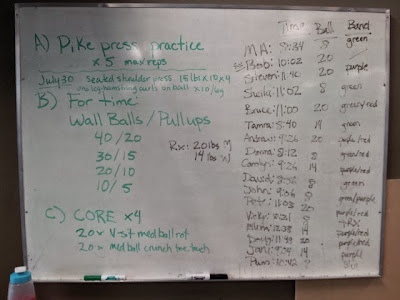 A) Pike press practice
x 5 max reps
July 30 Seated shoulder press 15lbs x 10 x 4
one leg hamstring curls on ball x 10/leg
B) For time:
Wall Balls / Pullups
40 / 20
30 / 15
20 / 10
10 / 5
Rx: 20lbs M
14 lbs W
C) CORE x4
20 x V-sit med ball rot
20 x med ball crunch toe touch
Time Ball Band
MA: 8 green
Bob: 10:02 20
Steven: 20 purple
Sheila: 11:02 8 green
Bruce: 11:00 20 green/red
Tamra: 8:40 14 green
Andrew: 9:26 20 purple/red
Donna: 8:12 8 green/red
Carolyn: 9:26 14 purple/red
David: 8 purple
John: 9:06 8 green
Pete: 11:03 20 green/purple
Vicky: 8 purple/red
14 TRX
Doug: 11:49 20 purple/red
14 purple
8